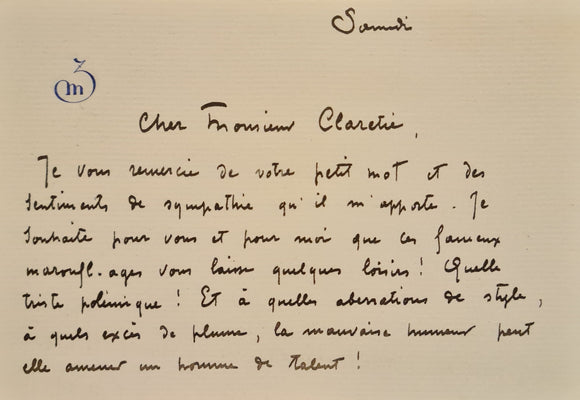 Samedi
m
Cher Monsieur Claretie,
Je vous remercie de votre petit mot et des
sentiments de sympathie qu'il m'apporte. Je
souhaite pour vous et pour moi que ces fameux
maroufl.ages vous laisse quelques loisirs! Quelle
triste polémique! Et à quelles aberrations de style,
à quels excès de plume, la mauvaise humeur peut
elle amener un homme de talent!